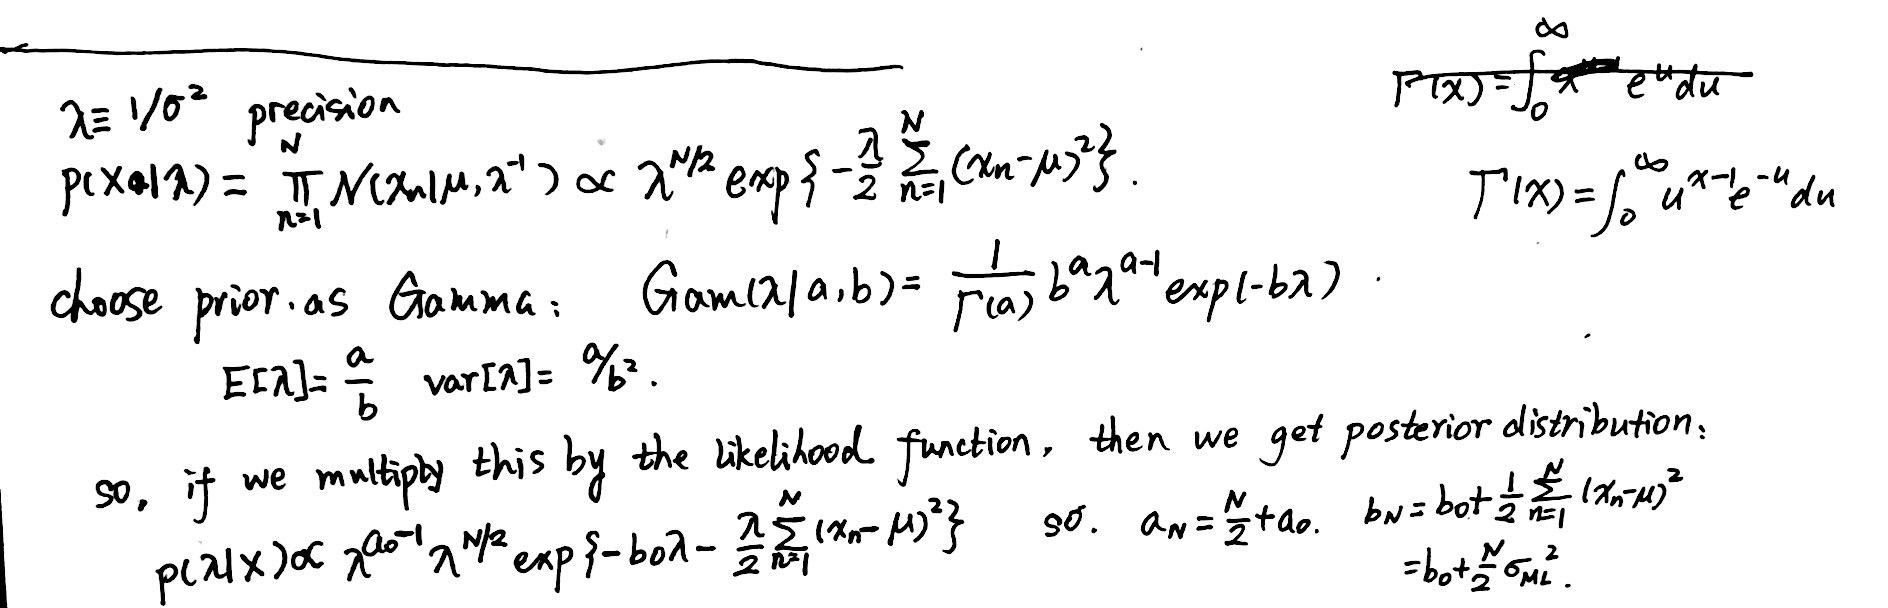 λ≡ 1/σ² precision
p(X|λ) = ∏_{n=1}^{N} N(xₙ|μ, λ⁻¹) ∝ λ^{N/2} exp{-λ/2 ∑_{n=1}^{N} (xₙ-μ)²}.
Γ(x) = ∫₀^∞ e^u du
Γ(x) = ∫₀^∞ u^{x-1} e^{-u} du
choose prior. as Gamma: Gam(λ|a,b) = 1/Γ(a) b^a λ^{a-1} exp(-bλ).
E[λ] = a/b var[λ] = a/b².
so, if we multiply this by the likelihood function, then we get posterior distribution:
p(λ|X) ∝ λ^{a₀-1} λ^{N/2} exp{-b₀λ - λ/2 ∑_{n=1}^{N} (xₙ-μ)²} so. a_N = N/2 + a₀. b_N = b₀ + 1/2 ∑_{n=1}^{N} (xₙ-μ)²
= b₀ + N/2 σ_{ML}².